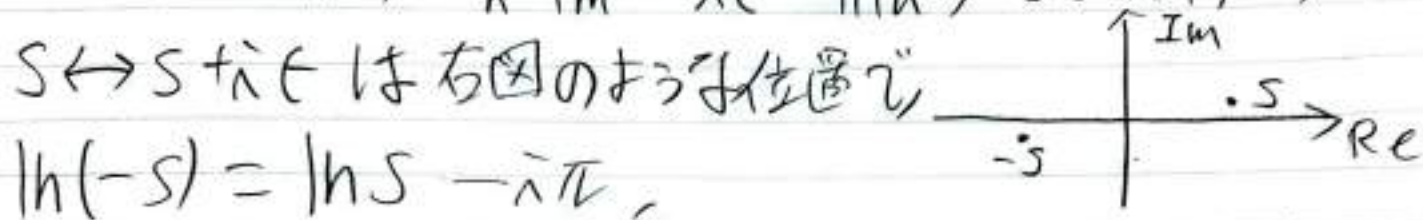 S↔S+iε は右図のような位置で,
ln(-S) = ln S - iπ,
Im
.S
Re
-S